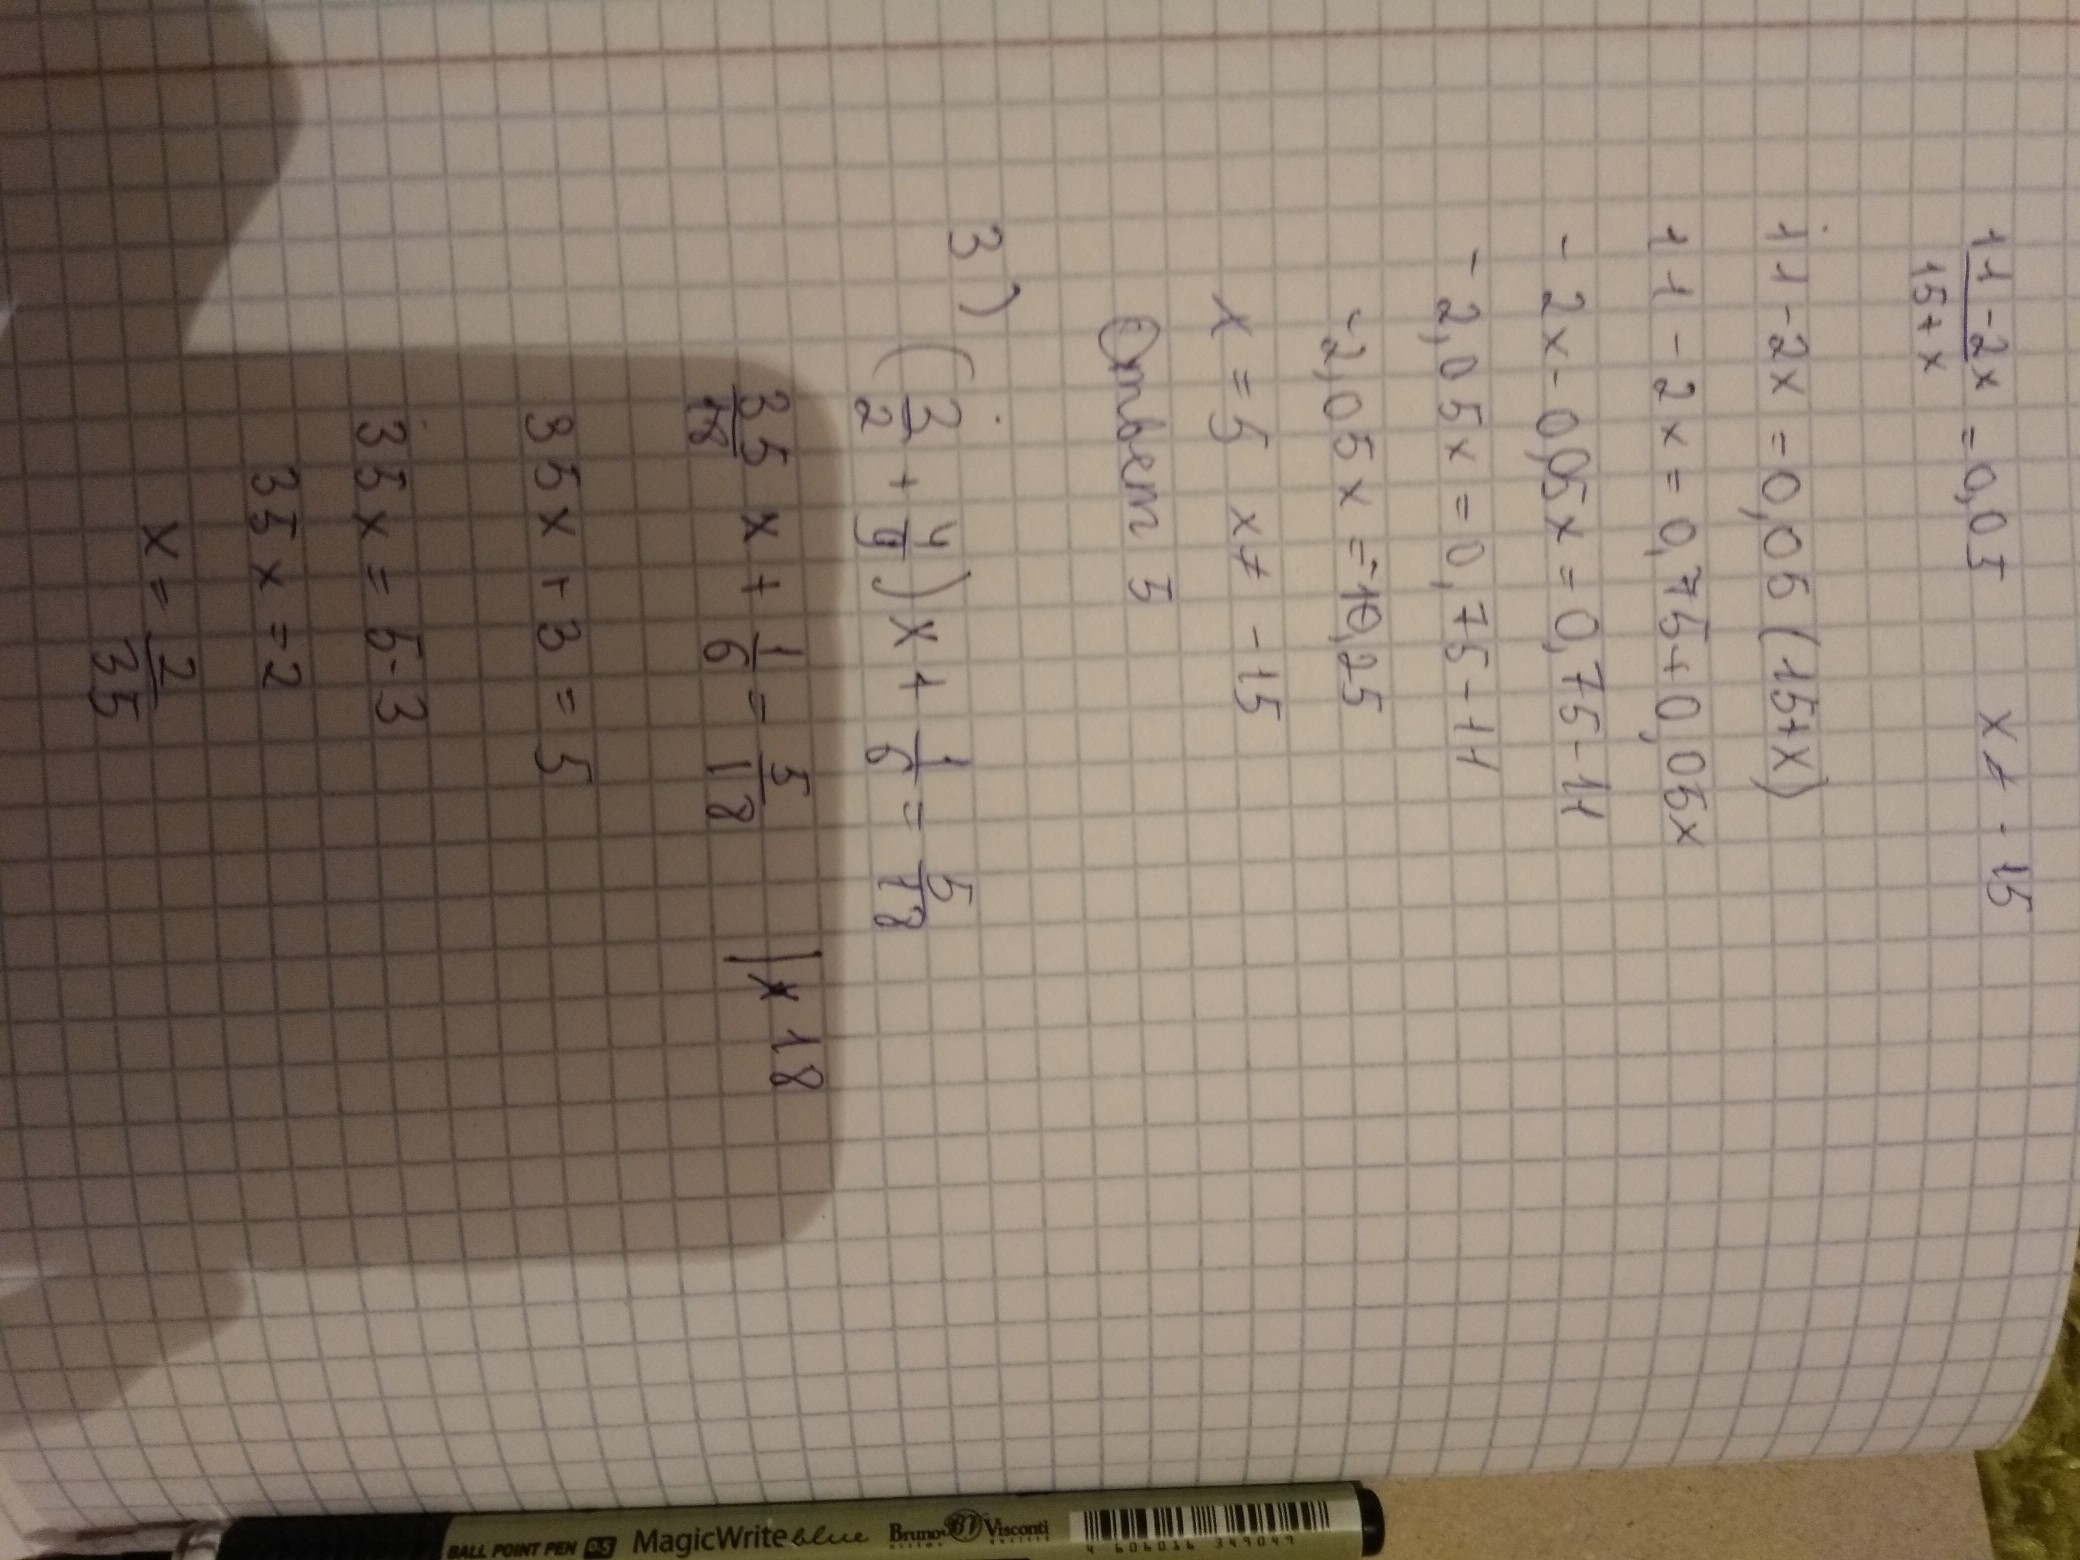 11-2x/15+x = 0,05 x ≠ -15
11-2x = 0,05 (15+x)
11 - 2x = 0,75+0,05x
- 2x - 0,05x = 0,75-11
- 2,05x = 0,75-11
-2,05x = -10,25
x = 5 x ≠ -15
Ответ 5
3) (3/2 + 4/9)x + 1/6 = 5/18
35/18 x + 1/6 = 5/18 | x 18
35x + 3 = 5
35x = 5-3
35x = 2
x = 2/35
BALL POINT PEN 0.5 MagicWrite blue Bruno BV Visconti
4 606016 349049